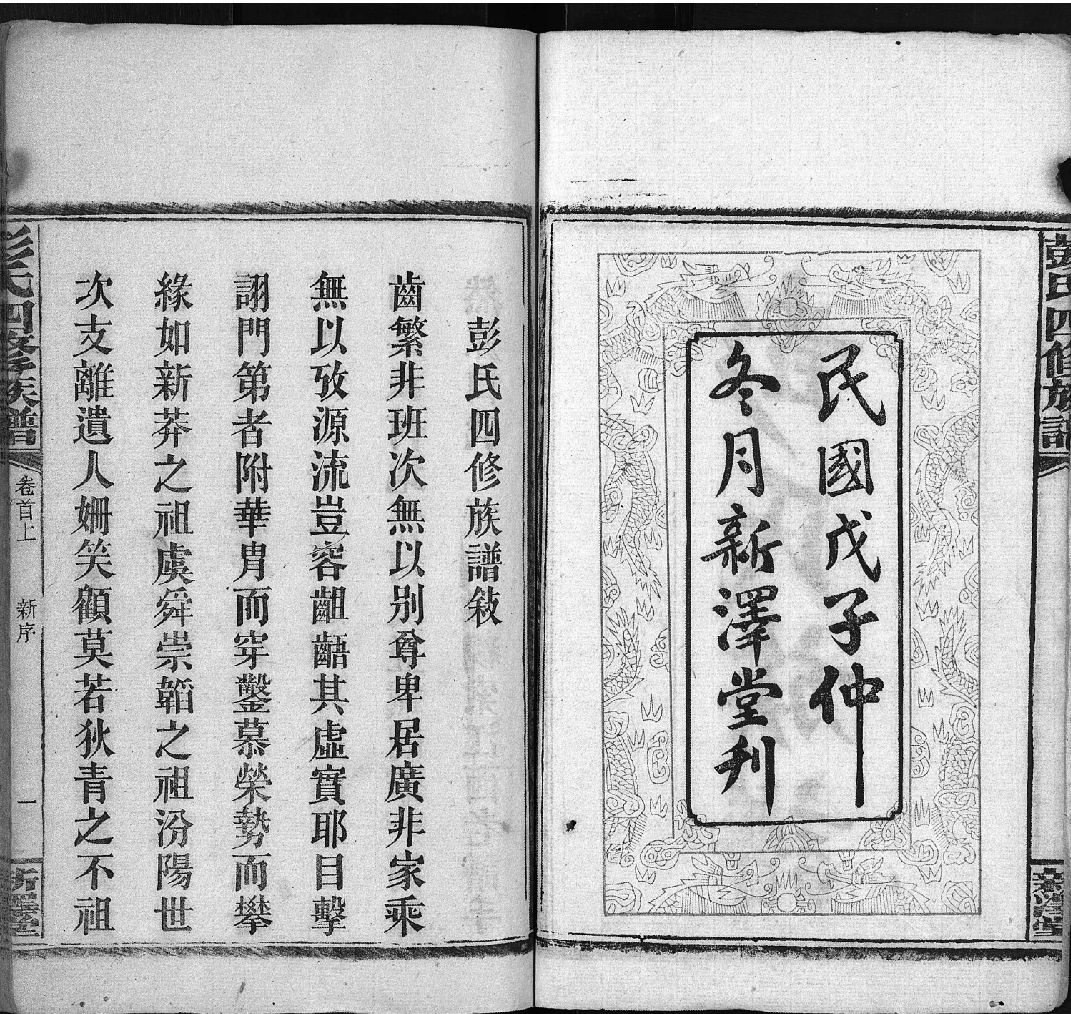 彭氏四修族譜
新澤堂
民國戊子仲
冬月新澤堂刋
彭氏四修族譜敍
齒繁非班次無以别尊卑居廣非家乘
無以攷源流豈容齟齬其虛實耶目擊
詡門第者附華胄而穿鑿慕榮勢而攀
緣如新莽之祖虞舜崇韜之祖汾陽世
次支離遺人姍笑顧莫若狄青之不祖
彭氏四修族譜
卷首上
新序
一
新澤堂